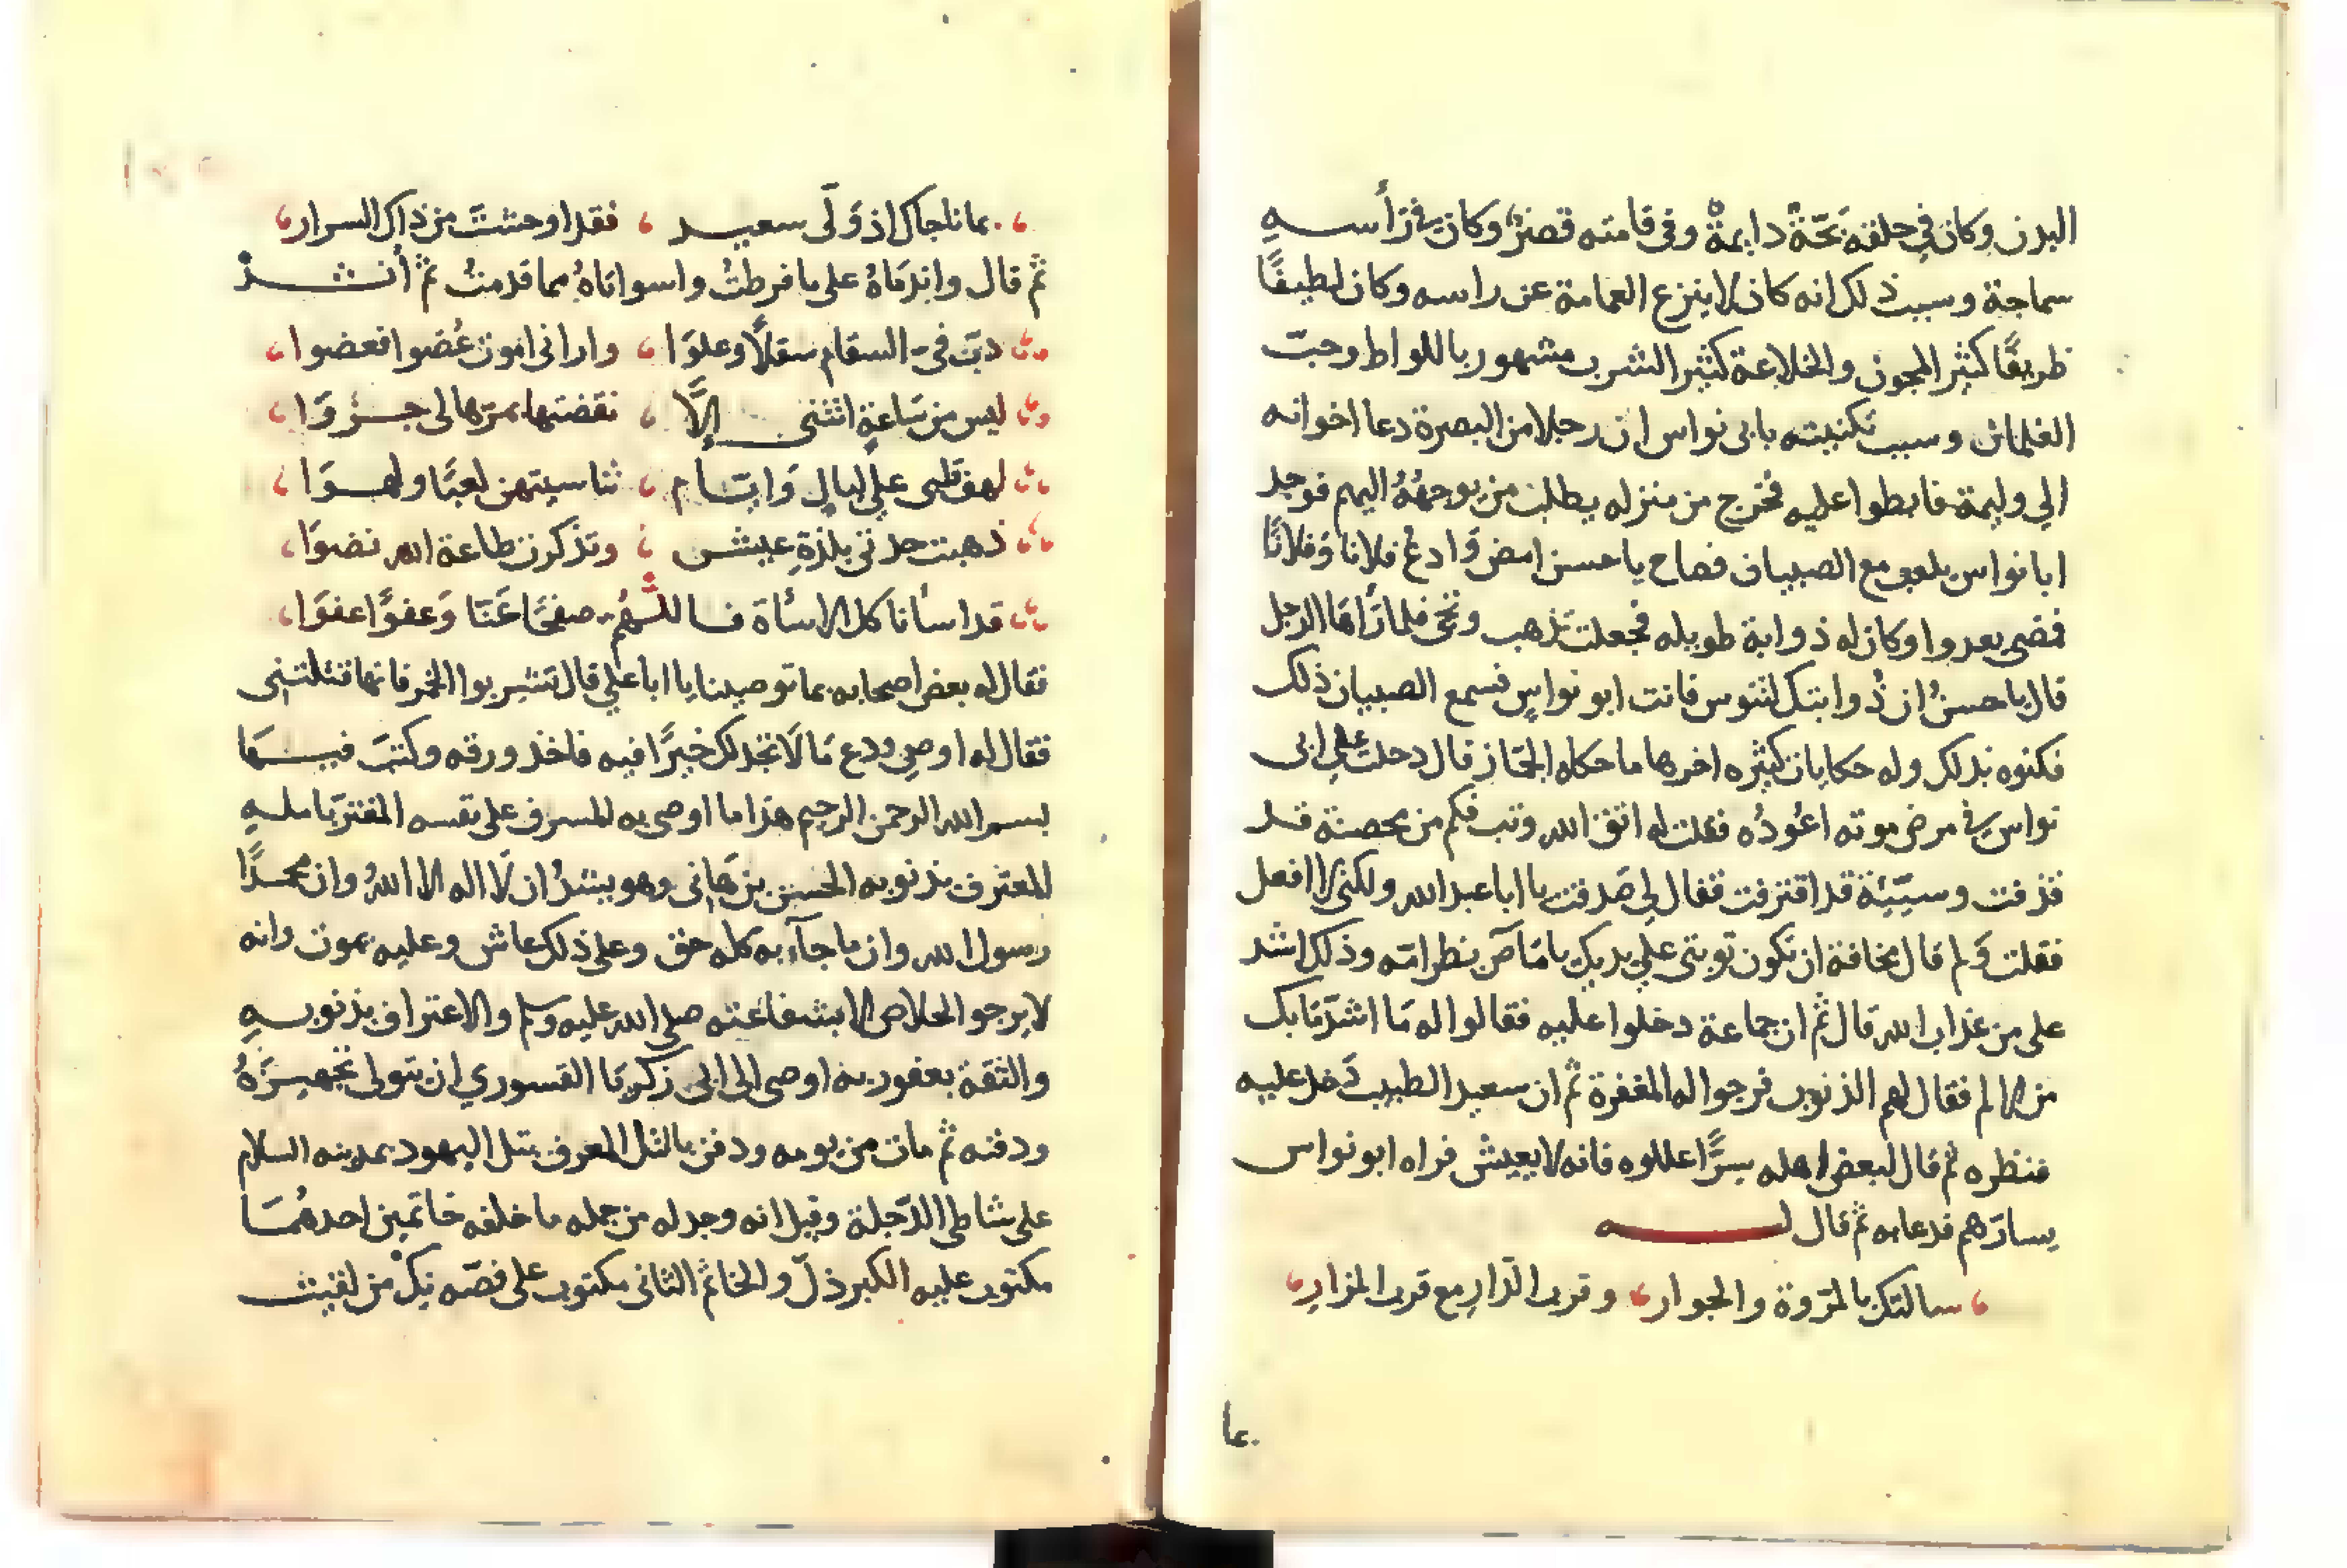 البدن وكان في حلقه بَحّةً دايمةْ وفى قامته قصرٌ وكان في رَأسـه
سماجة وسبب ذلك انه كان لا ينزع العمامة عن راسه وكان لطيفًا
ظريفًا كثير المجون والخلاعة كثير الشرب مشهور باللواط وحبّ
الغلمان وسبب تكنيته بابى نواس ان رجلا من البصرة دعا اخوانه
الي وليمة فابطوا عليه فخرج من منزله يطلب من يوجهُهُ اليهم فوجد
ابا نواس يلعب مع الصبيان فصاح يا حسن امض وَادعُ فلانا وَفلانًا
فمضى يعدوا وكان له ذوابة طويله فجعلت تذهب وتجى فلما رَاهَا الرجل
قال يا حسنُ ان ذُوابتك لتنوس فانت ابو نواسٍ فسمع الصبيان ذلك
فكنوه بذلك وله حكايات كثيره اخرها ما حكاه الجمّاز قال دخلت علي ابى
نواس في مرض موته اعُودُه فقلت له اتق الله وتب فكم من محصنة قد
قذفت وسيّئة قد اقترفت فقال لي صَدقت يا ابا عبد الله ولكنى لا افعل
فقلت وَلم قال مخافة ان تكون توبتى علي يديك يا مَاصّ بظر امّه وذلك اشد
على من عذاب الله قال ثم ان جماعة دخلوا عليه فقالوا له مَا اشدّ مَا بك
من الالم فقال لهم الذنوب فرجوا له المغفرة ثم ان سعيد الطبيب دَخل عليه
فنظره ثم قال لبعض اهله سرًّا عللوه فانه لا يعيش فراه ابو نواس
يسارّهم فدعا به ثم قال لـه
سالتك بالمرّوة والجوار وقرب الدّارِ مع قرب المزارِ
بما
بما ناجاك اذ وَلّى سعيد فقد اوحشتَ من ذاك السرار
ثم قال واندمَاهُ على ما فرطتُ واسواتاهُ مما قدمتُ ثم أنشد
دبّ فيّ السقام سقلًا وعلوَا وارانى اموت عُضوا فعضوا
ليس من سَاعةٍ اتثنى إلاَّ نقضتها بمرّها لى جزؤوَا
لهف قلبى علي ليالٍ وَايّام تناسيتهن لعبًا ولهوَا
ذهبت جدتى بلذةِ عيش وتذكرت طاعة الله نضوَا
قد اسأنا كل الاسأة فاللهُم صفحًا عَنّا وَعفوًا عفوَا
فقال له بعض اصحابه بما توصينا يا ابا علي قال تشربوا الخمر فانها قتلتنى
فقال له اوصِ ودع مَا لَا تجد لك خيرًا فيه فاخذ ورقه وكتبَ فيهَا
بسم الله الرحمن الرحيم هذا ما اوصى به المسرف على نفسه المغترّ باملهِ
المعترف بذنوبه الحسن بن هَانى وهو يشدُ ان لَا اله الا اللهُ وان محمدًا
رسول الله وان ما جآء به كله حق وعلى ذلك عاش وعليه يموت وانه
لا يرجو الخلاص الا بشفاعته صلى الله عليه وسلم والاعتراف بذنوبـهِ
والثقة بعفو ربه اوصى الى ابى زكريَا القسوري ان يتولى تجهيزهُ
ودفنه ثم مات من يومه ودفن بالتل المعرف بتل اليهود بمدينه السلام
على شاطى الدّجلة وقيل انه وجد له من جمله ما خلفه خاتمين احدهُمَا
مكتوب عليه الكبر ذلّ والخاثم الثانى مكتوب على فصّه نِكْ من لقيت